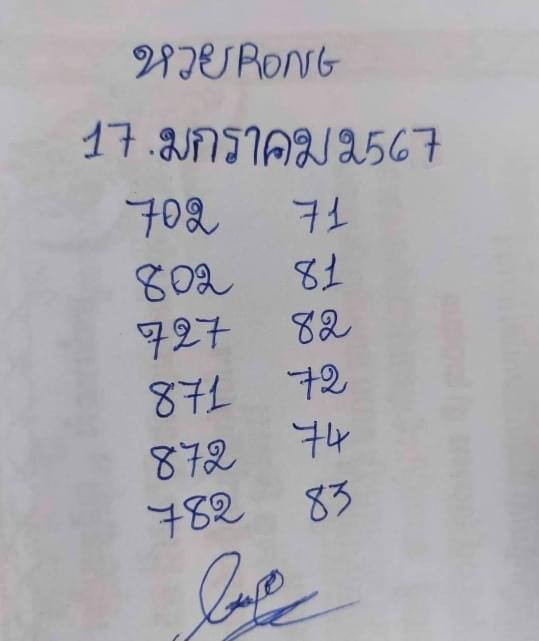 หวยRONG
17.มกราคม2567
702 71
802 81
727 82
871 72
872 74
782 83